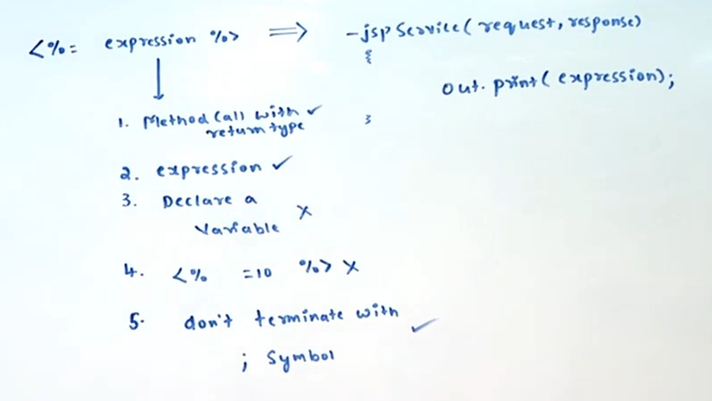 <%= expression %> ⟹ -jspService(request, response)
{
out.print(expression);
}
↓
1. Method Call with ✓
return type
2. expression ✓
3. Declare a
Variable ×
4. <% =10 %> ×
5. don't terminate with ✓
; Symbol